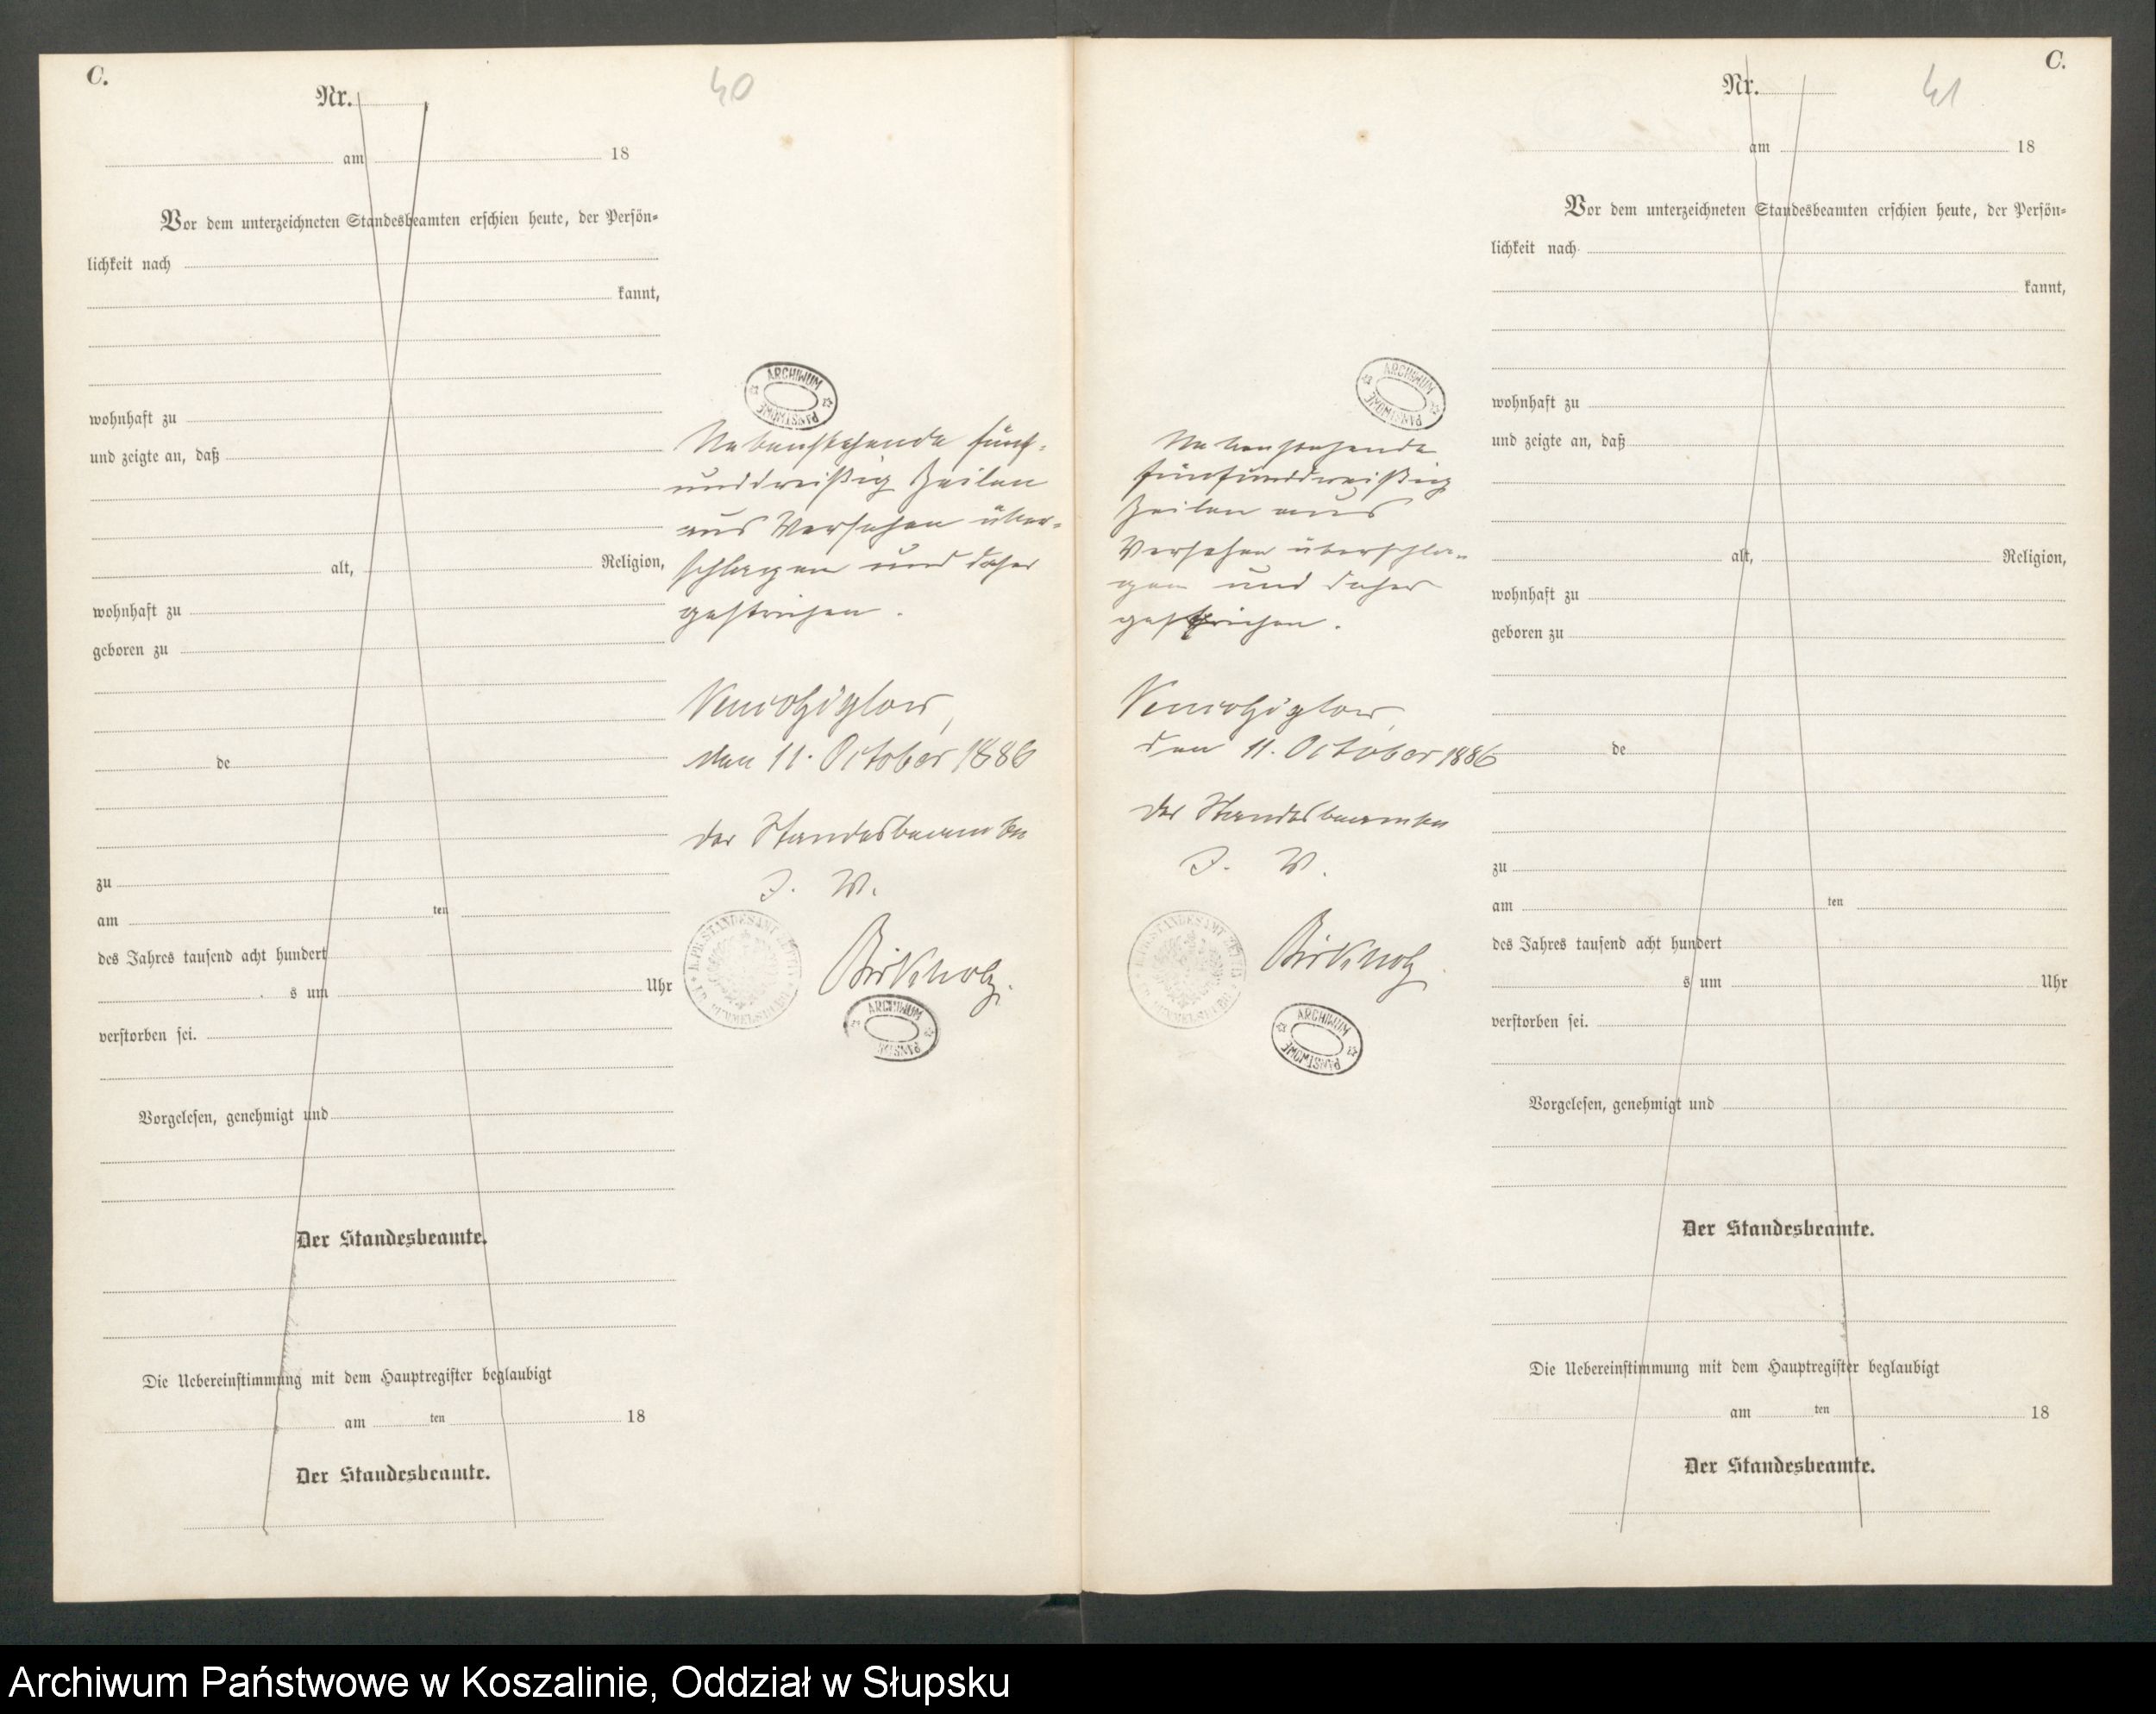 C.
Nr. 40
am 18
Vor dem unterzeichneten Standesbeamten erschien heute, der Persön-
lichkeit nach
kannt,
wohnhaft zu
und zeigte an, daß
alt, Religion,
wohnhaft zu
geboren zu
de
zu
am ten
des Jahres tausend acht hundert
s um Uhr
verstorben sei.
Vorgelesen, genehmigt und
Der Standesbeamte.
Die Uebereinstimmung mit dem Hauptregister beglaubigt
am ten 18
Der Standesbeamte.
ARCHIWUM PAŃSTWOWE
Nebenstehende fünf-
unddreißig Zeilen
aus Versehen über-
schlagen und daher
gestrichen.
den 11. October 1886
der Standesbeamte
I. V.
K. PR. STANDESAMT
Birkholz.
ARCHIWUM PAŃSTW
ARCHIWUM PAŃSTWOWE
Nebenstehende
fünfunddreißig
Zeilen aus
Versehen überschla-
gen und daher
gestrichen.
den 11. October 1886
der Standesbeamte
I. V.
STANDESAMT
Birkholz
ARCHIWUM PAŃSTWOWE
C.
Nr. 41
am 18
Vor dem unterzeichneten Standesbeamten erschien heute, der Persön-
lichkeit nach
kannt,
wohnhaft zu
und zeigte an, daß
alt, Religion,
wohnhaft zu
geboren zu
de
zu
am ten
des Jahres tausend acht hundert
s um Uhr
verstorben sei.
Vorgelesen, genehmigt und
Der Standesbeamte.
Die Uebereinstimmung mit dem Hauptregister beglaubigt
am ten 18
Der Standesbeamte.
Archiwum Państwowe w Koszalinie, Oddział w Słupsku